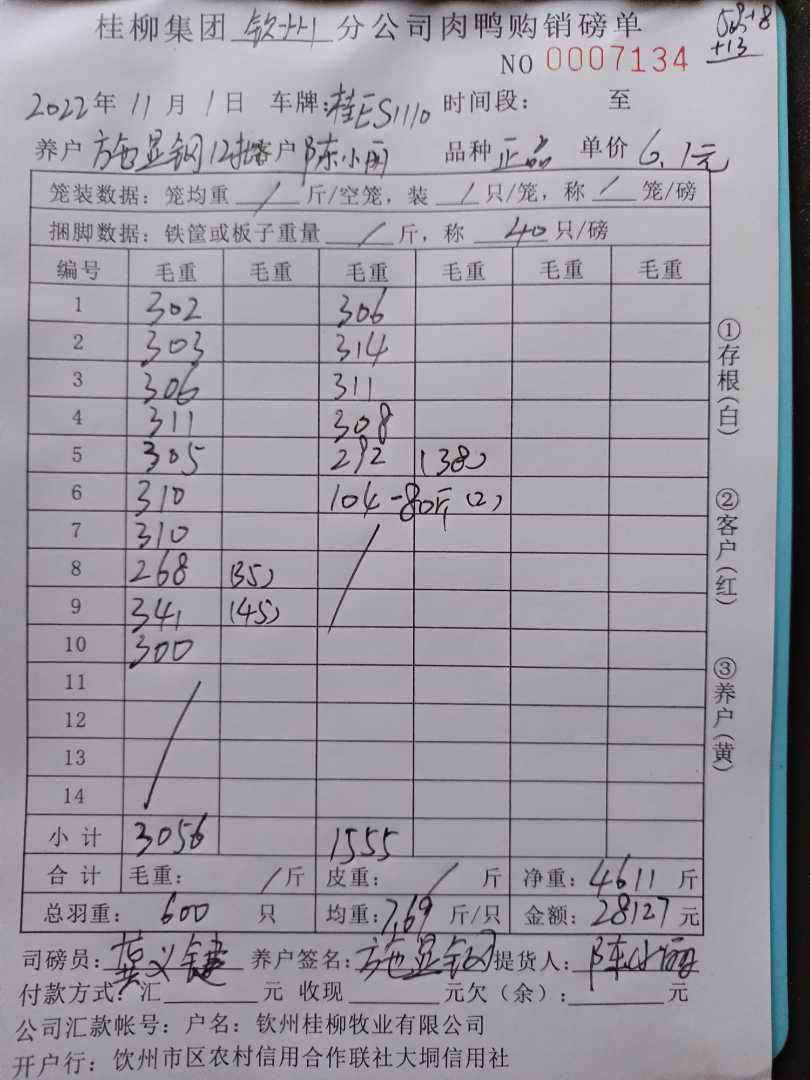 桂柳集团 钦州 分公司肉鸭购销磅单
+13
NO 0007134
2022年 11月 1日 车牌:桂ES1110 时间段: 至
养户 施显钢12批 客户 陈小丽 品种 正品 单价 6.1元
笼装数据:笼均重 / 斤/空笼,装 / 只/笼,称 / 笼/磅
捆脚数据:铁筐或板子重量 / 斤,称 40 只/磅
编号 毛重 毛重 毛重 毛重 毛重 毛重
1 302 306
2 303 314
3 306 311
4 311 308
5 305 292 (38)
6 310 104-80斤(2)
7 310
8 268 (35)
9 341 (45)
10 300
11
12
13
14
小计 3056 1555
合计 毛重: / 斤 皮重: / 斤 净重: 4611 斤
总羽重: 600 只 均重: 7.69 斤/只 金额: 28127 元
司磅员: 龚义键 养户签名: 施显钢 提货人: 陈小丽
付款方式:汇 元 收现 元欠(余): 元
公司汇款帐号:户名:钦州桂柳牧业有限公司
开户行:钦州市区农村信用合作联社大垌信用社
①存根(白)
②客户(红)
③养户(黄)